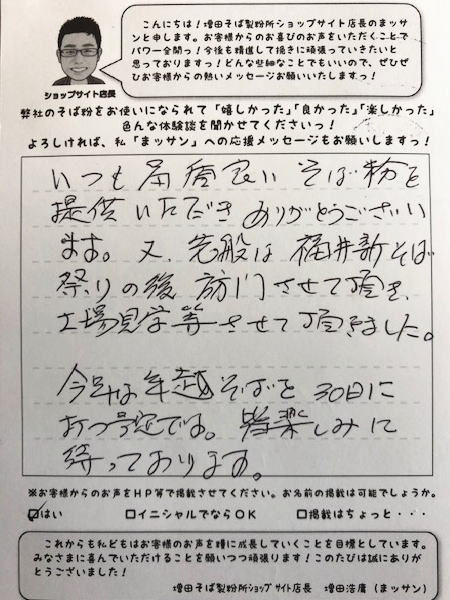 こんにちは！増田そば製粉所ショップサイト店長のまッサ
ンと申します。お客様からのお喜びのお声をいただくことで
パワー全開っ！今後も精進して挽きに頑張っていきたいと
思っておりますっ！どんな些細なことでもいいので、ぜひぜ
ひお客様からの熱いメッセージお願いいたしますっ！
ショップサイト店長
弊社のそば粉をお使いになられて「嬉しかった」「良かった」「楽しかった」
色んな体験談を聞かせてくださいっ！
よろしければ、私「まッサン」への応援メッセージもお願いしますっ！
いつも品質良い そば粉を
提供いただき ありがとうござい
ます。又、先般は 福井新そば
祭りの後 訪問させて頂き、
工場見学等させて頂きました。
今年は年越そばを 30日に
おつ予定です。皆楽しみに
待っております。
※お客様からのお声をHP等で掲載させてください。お名前の掲載は可能でしょうか。
☑はい □イニシャルでならOK □掲載はちょっと・・・
これからも私どもはお客様と共に成長していくことを目標としています。
みなさまに喜んでいただけることを願いつつ頑張ります！このたびは誠にありが
とうございました！
増田そば製粉所ショップサイト店長 増田浩庸（まッサン）